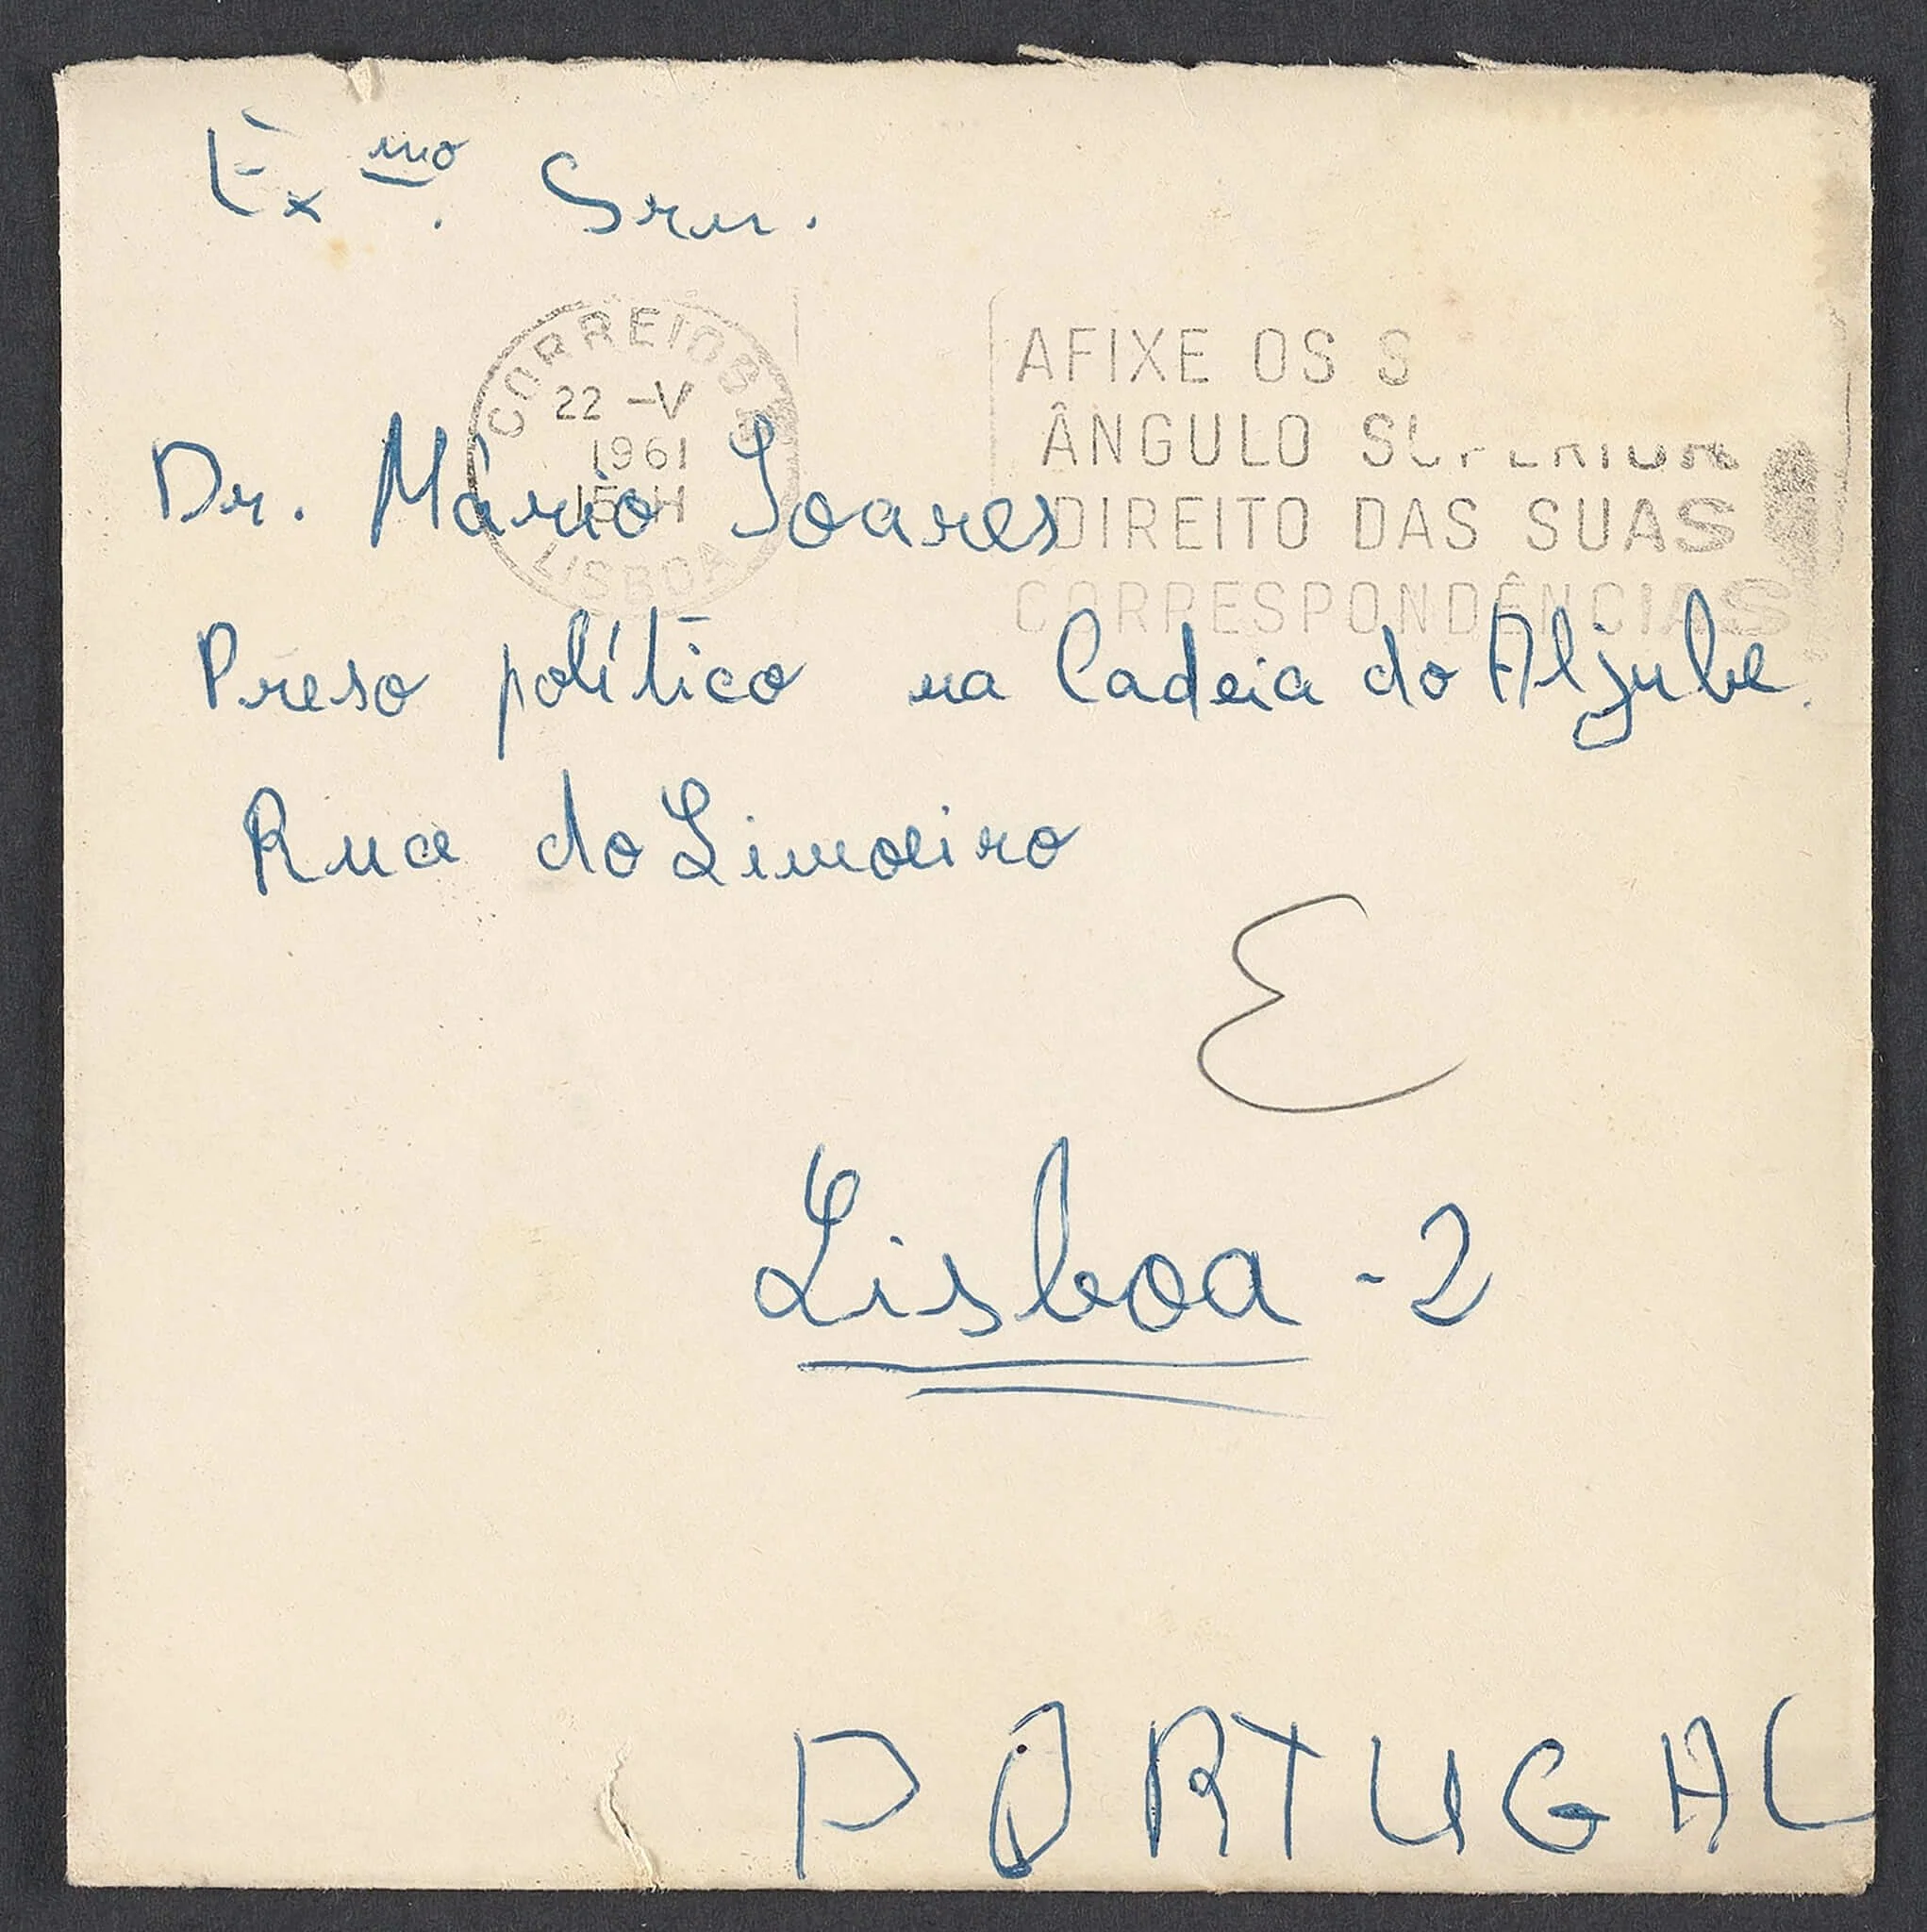 Exmo. Srn.
CORREIOS
22-V
1961
15 H
LISBOA
AFIXE OS S
ÂNGULO SUPERIOR
DIREITO DAS SUAS
CORRESPONDÊNCIAS
Dr. Mário Soares
Preso político na Cadeia do Aljube.
Rua do Limoeiro
E
Lisboa - 2
PORTUGAL